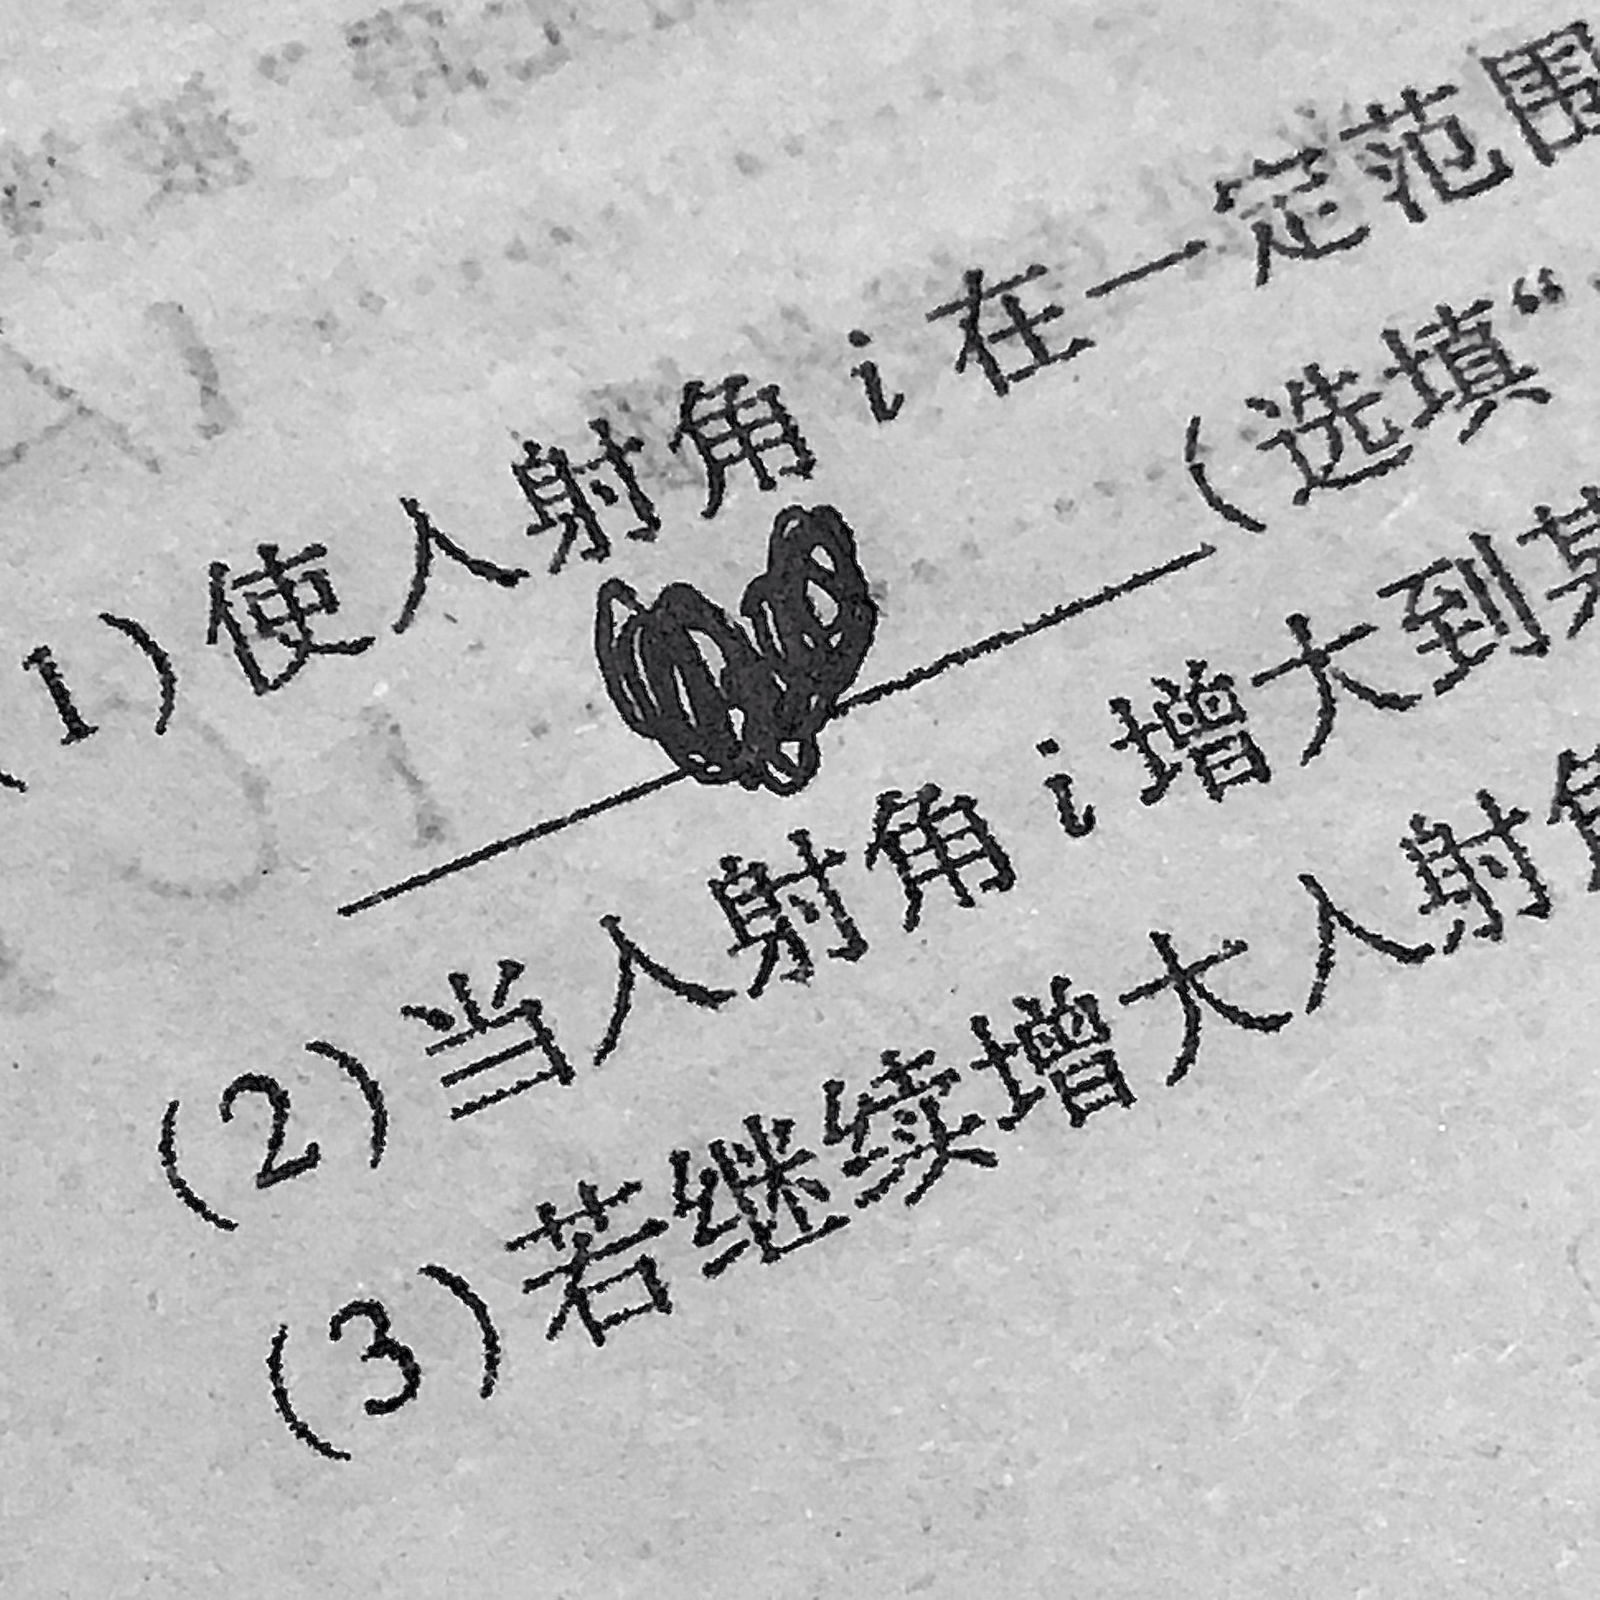 (1)使入射角 i 在一定范围
(选填“
(2)当入射角 i 增大到某
(3)若继续增大入射角